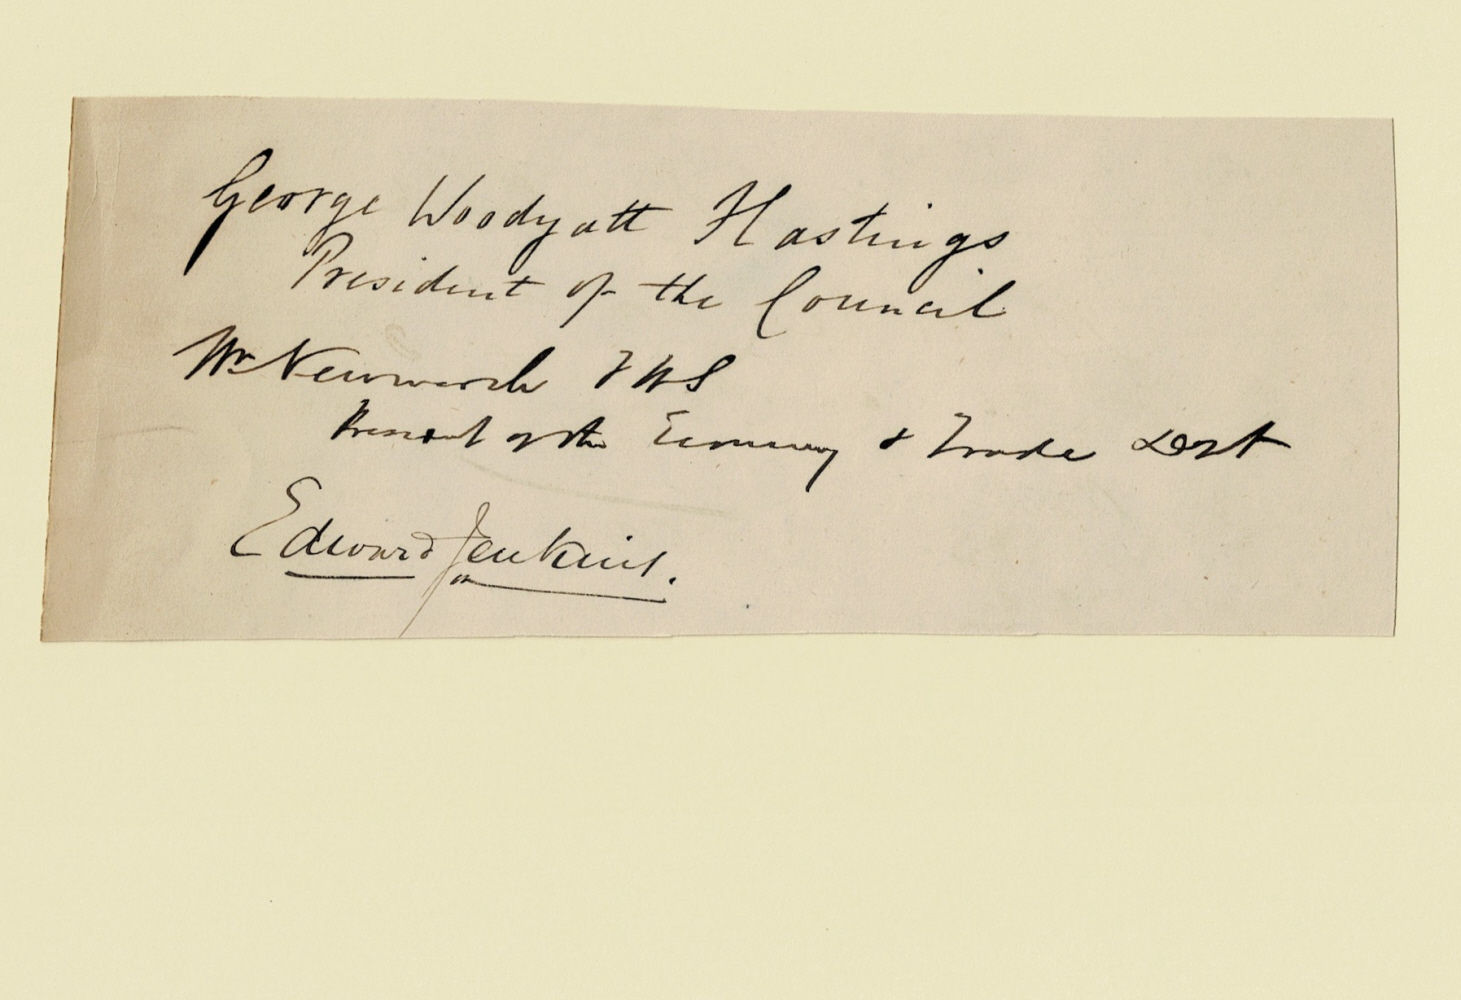 George Woodyatt Hastings
President of the Council
Wm Newmarch FRS
President of the Economy & Trade Dept
Edward Jenkins.